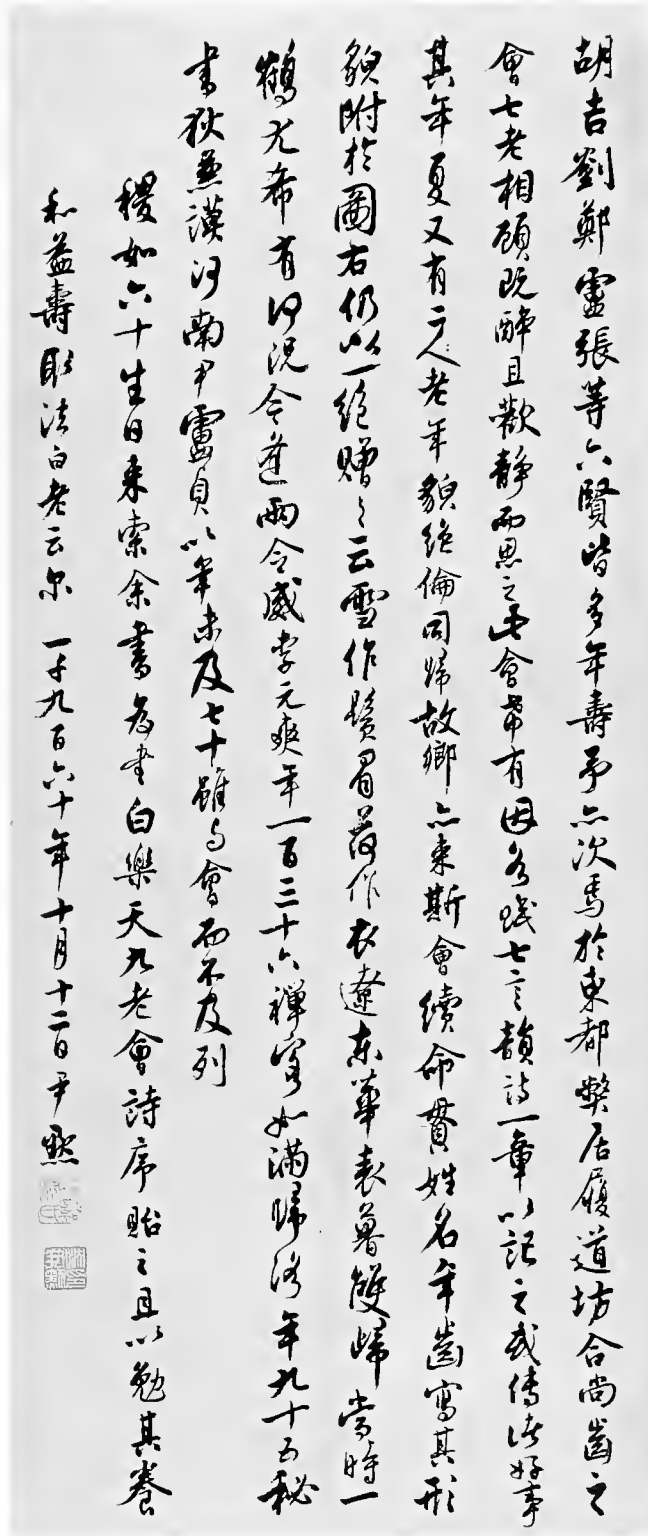 胡吉劉鄭盧張等六賢皆多年壽予亦次焉於東都弊居履道坊合尚齒之
會七老相顧既醉且歡靜而思之此會希有因各賦七言韻詩一章以記之或傳諸好事
其年夏又有二人老年貌絕倫同歸故鄉亦來斯會續命書姓名年齒寫其形
貌附於圖右仍以一絕贈之云雪作鬚眉雲作衣遼東華表暮雙歸當時一
鶴尤希有何況今逢兩令威李元爽年一百三十六禪客如滿歸洛年九十五秘
書狄兼謨河南尹盧貞以年未及七十雖與會而不及列
稷如六十生日來索余書為書白樂天九老會詩序貽之且以勉其養
和益壽取法白老云尔 一千九百六十年十月十二日尹默